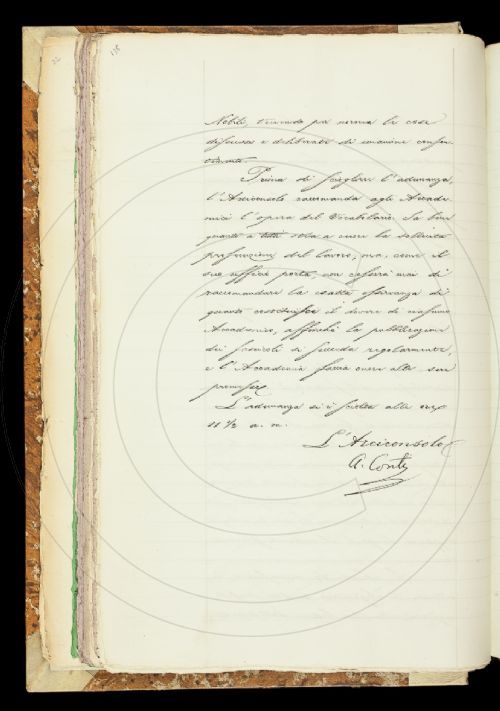 138
Nobili, tenendo per norma le cose
discusse e deliberate di comune consen-
timento.
Prima di sciogliere l'adunanza,
l'Arciconsolo raccomanda agli Accade-
mici l'opera del Vocabolario. Sa bene
quanto a tutti stia a cuore la sollecita
del lavoro; ma, come il
suo ufficio porta, non cesserà mai di
raccomandare la esatta osservanza di
quanto costituisce il dovere di ciascuno
Accademico, affinché la pubblicazione
dei fascicoli si succeda regolarmente,
e l'Accademia faccia onore alle sue
promesse.
L'adunanza si è sciolta alle ore
11 ½ a. m.
L'Arciconsolo
A. Conti